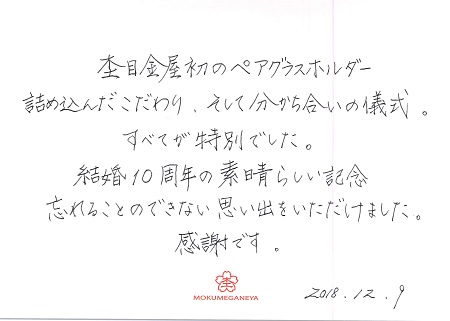 杢目金屋初のペアグラスホルダー
詰め込んだこだわり、そして分かち合いの儀式。
すべてが特別でした。
結婚10周年の素晴らしい記念
忘れることのできない思い出をいただけました。
感謝です。
MOKUMEGANEYA
2018.12.9